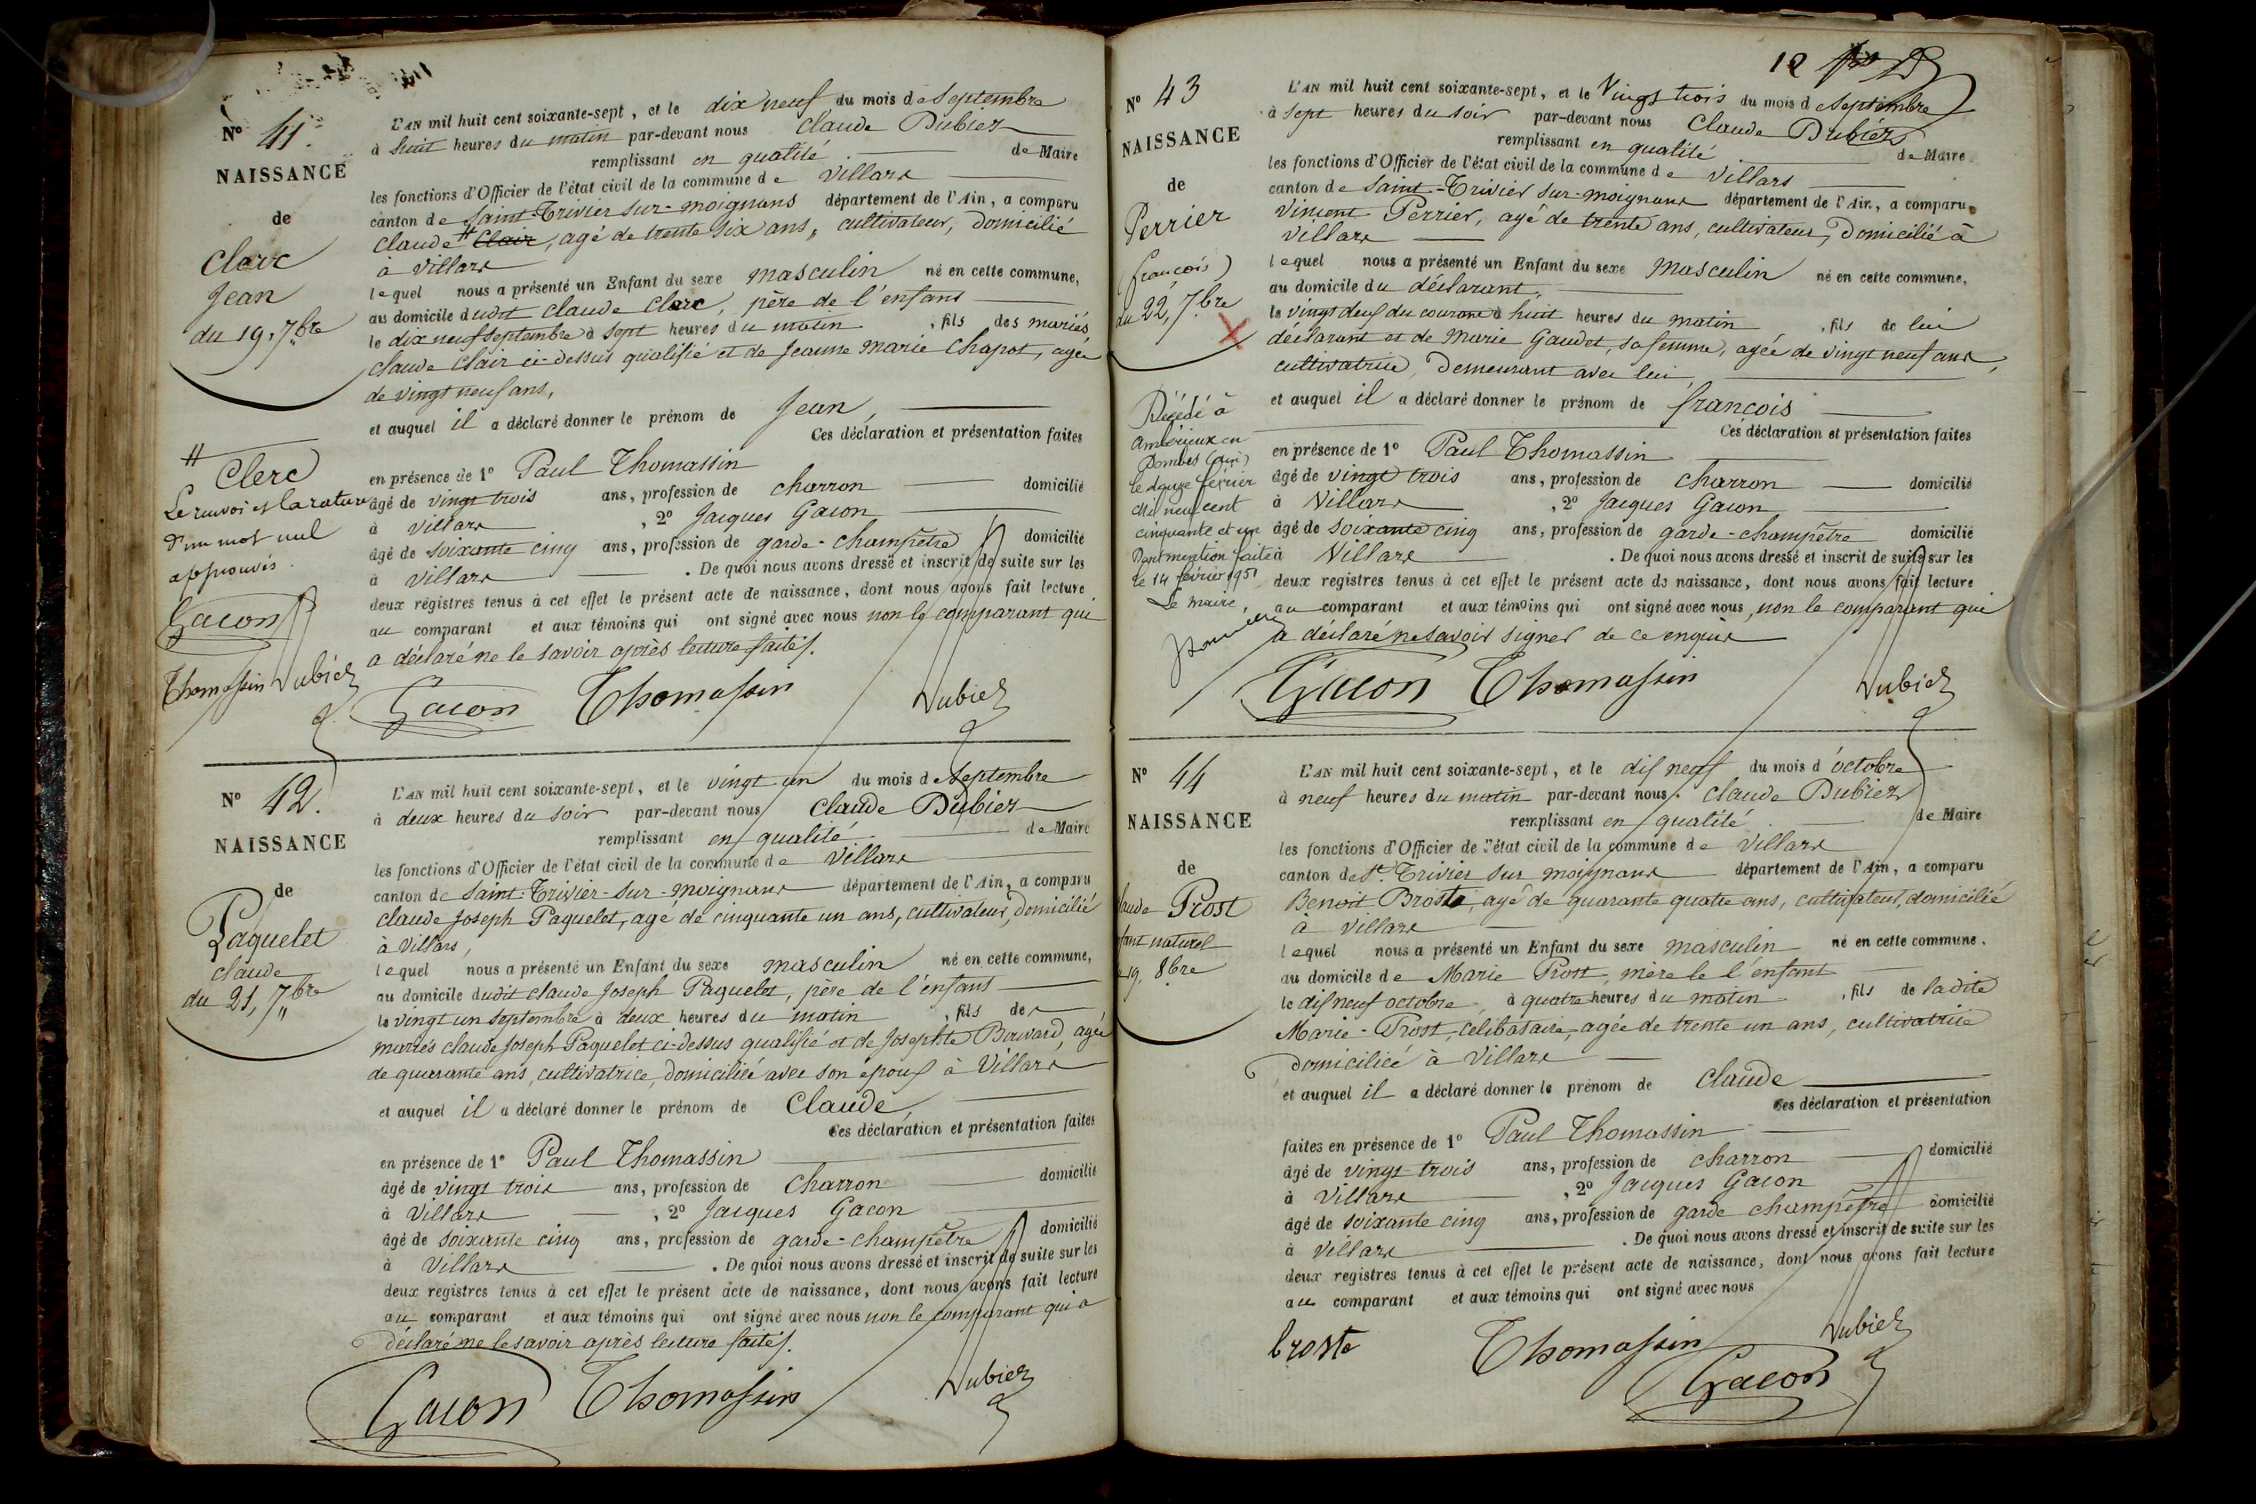 Nº 41.
NAISSANCE
de
Clerc
Jean
du 19, 7bre
L'AN mil huit cent soixante-sept, et le dix neuf du mois de Septembre
à huit heures du matin par-devant nous Claude Dubiez
remplissant en qualité de Maire
les fonctions d'Officier de l'état civil de la commune de Villars
canton de Saint-Trivier sur-moignans département de l'Ain, a comparu
Claude # Clair, agé de trente six ans, cultivateur, Domicilié
à Villars
lequel nous a présenté un Enfant du sexe masculin né en cette commune,
au domicile dudit Claude Clerc, père de l'enfant
le dix neuf septembre à sept heures du matin, fils des mariés
Claude Clair ci-dessus qualifié et de Jeanne Marie Chapot, agée
de vingt neuf ans,
et auquel il a déclaré donner le prénom de Jean,
Ces déclaration et présentation faites
en présence de 1º Paul Thomassin
âgé de vingt trois ans, profession de charron domicilié
à Villars, 2º Jacques Gacon
âgé de soixante cinq ans, profession de garde-champêtre domicilié
à Villars. De quoi nous avons dressé et inscrit de suite sur les
deux registres tenus à cet effet le présent acte de naissance, dont nous avons fait lecture
au comparant et aux témoins qui ont signé avec nous non le comparant qui
a déclaré ne le savoir après lecture faites.
#
Clerc
Le renvoi et la rature
d'un mot nul
approuvés.
Gacon
Thomassin Dubiez
Gacon Thomassin Dubiez
Nº 42.
NAISSANCE
de
Paquelet
Claude
du 21, 7bre
L'AN mil huit cent soixante-sept, et le vingt un du mois de Septembre
à deux heures du soir par-devant nous Claude Dubiez
remplissant en qualité de Maire
les fonctions d'Officier de l'état civil de la commune de Villars
canton de Saint-Trivier-sur-moignans département de l'Ain, a comparu
Claude Joseph Paquelet, agé de cinquante un ans, cultivateur, domicilié
à Villars,
lequel nous a présenté un Enfant du sexe masculin né en cette commune,
au domicile dudit Claude Joseph Paquelet, père de l'enfant
le vingt un septembre à deux heures du matin, fils des
mariés Claude Joseph Paquelet ci-dessus qualifié et de Josephte Bouvard, agée
de quarante ans, cultivatrice, domiciliée avec son epoux à Villars
et auquel il a déclaré donner le prénom de Claude,
Ces déclaration et présentation faites
en présence de 1º Paul Thomassin
âgé de vingt trois ans, profession de Charron domicilié
à Villars, 2º Jacques Gacon
âgé de soixante cinq ans, profession de garde-champêtre domicilié
à Villars. De quoi nous avons dressé et inscrit de suite sur les
deux registres tenus à cet effet le présent acte de naissance, dont nous avons fait lecture
au comparant et aux témoins qui ont signé avec nous non le comparant qui a
déclaré ne le savoir après lecture faites.
Gacon Thomassin Dubiez
12
Nº 43
NAISSANCE
de
Perrier
françois
du 22, 7bre
L'AN mil huit cent soixante-sept, et le Vingt trois du mois de Septembre
à sept heures du soir par-devant nous Claude Dubiez
remplissant en qualité de Maire
les fonctions d'Officier de l'état civil de la commune de Villars
canton de Saint-Trivier sur-moignans département de l'Ain, a comparu
Vincent Perrier, agé de trente ans, cultivateur, Domicilié à
Villars
lequel nous a présenté un Enfant du sexe masculin né en cette commune,
au domicile du déclarant,
le vingt deux du courant à huit heures du matin, fils de lui
déclarant et de Marie Gaudet, sa femme, agée de vingt neuf ans,
cultivatrice, Demeurant avec lui,
et auquel il a déclaré donner le prénom de françois
Ces déclaration et présentation faites
en présence de 1º Paul Thomassin
âgé de vingt trois ans, profession de charron domicilié
à Villars, 2º Jacques Gacon
âgé de soixante cinq ans, profession de garde-champêtre domicilié
à Villars. De quoi nous avons dressé et inscrit de suite sur les
deux registres tenus à cet effet le présent acte de naissance, dont nous avons fait lecture
au comparant et aux témoins qui ont signé avec nous, non le comparant qui
a déclaré ne savoir signer de ce enquis
Décédé à
Ambérieux en
Dombes (Ain)
le douze février
mil neuf cent
cinquante et un
Dont mention faite
le 14 février 1951
Le maire,
Gacon Thomassin Dubiez
Nº 44
NAISSANCE
de
Claude Prost
enfant naturel
19. 8bre
L'AN mil huit cent soixante-sept, et le dix neuf du mois d'octobre
à neuf heures du matin par-devant nous Claude Dubiez
remplissant en qualité de Maire
les fonctions d'Officier de l'état civil de la commune de Villars
canton de St. Trivier sur moignans département de l'Ain, a comparu
Benoit Broste, agé de quarante quatre ans, cultivateur, domicilié
à Villars
lequel nous a présenté un Enfant du sexe masculin né en cette commune,
au domicile de Marie Prost, mère le l'enfant
le dix neuf octobre à quatre heures du matin, fils de ladite
Marie-Prost, célibataire, agée de trente un ans, cultivatrice
domiciliée à Villars
et auquel il a déclaré donner le prénom de Claude
Ces déclaration et présentation
faites en présence de 1º Paul Thomassin
âgé de vingt trois ans, profession de charron domicilié
à Villars, 2º Jacques Gacon
âgé de soixante cinq ans, profession de garde champêtre domicilié
à Villars. De quoi nous avons dressé et inscrit de suite sur les
deux registres tenus à cet effet le présent acte de naissance, dont nous avons fait lecture
au comparant et aux témoins qui ont signé avec nous
broste Thomassin Dubiez
Gacon